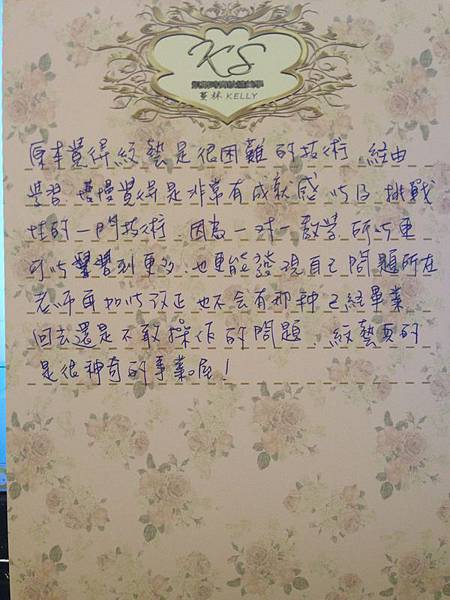 KS
蔓林 KELLY
原本覺得紋藝是很困難的技術 經由
學習 慢慢覺得是非常有成就感以及挑戰
性的一門技術 因為一對一教學 所以更
可以學習到更多 也更能發現自己問題所在
老師再加以改正 也不會有那种已經畢業
回去還是不敢操作的問題 紋藝真的
是很神奇的事業喔!